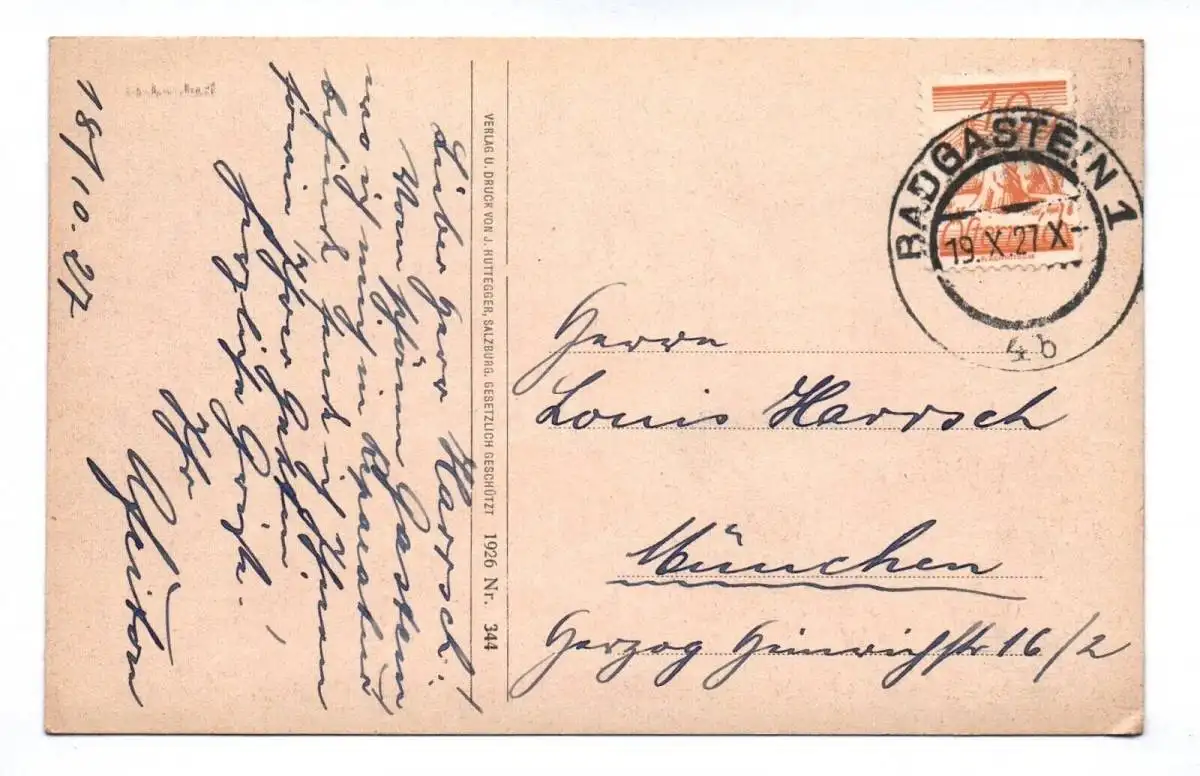 18/10.27
Lieber Herr Harrsch!
Vom schönen Gastein
wo ich mich in Reparatur
befinde sende ich Ihnen
sowie Ihrer Gattin
herzliche Grüße.
Ihr
VERLAG U. DRUCK VON J. HUTTEGGER, SALZBURG. GESETZLICH GESCHÜTZT 1926 Nr. 344
10
Österreich
BADGASTEIN 1
19.X.27 X
4b
Herrn
Louis Harrsch
München
Herzog Heinrichstr 16/2